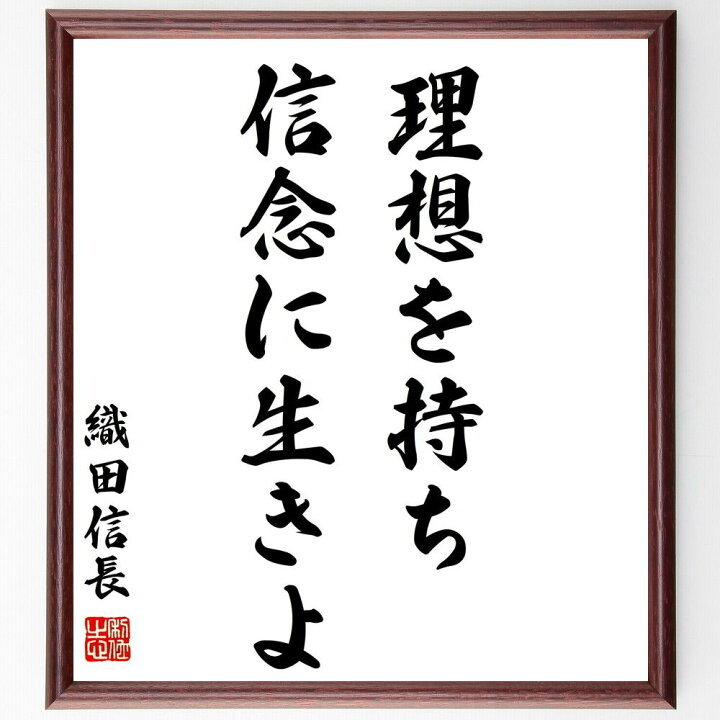 理想を持ち
信念に生きよ
織田信長